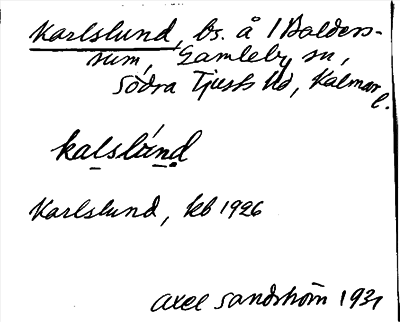 Karlslund, bs. å 1 Balders-
rum, Gamleby sn,
Södra Tjusts hd, Kalmar l.
kalslúnd
Karlslund, kb 1926
Axel Sandström 1931